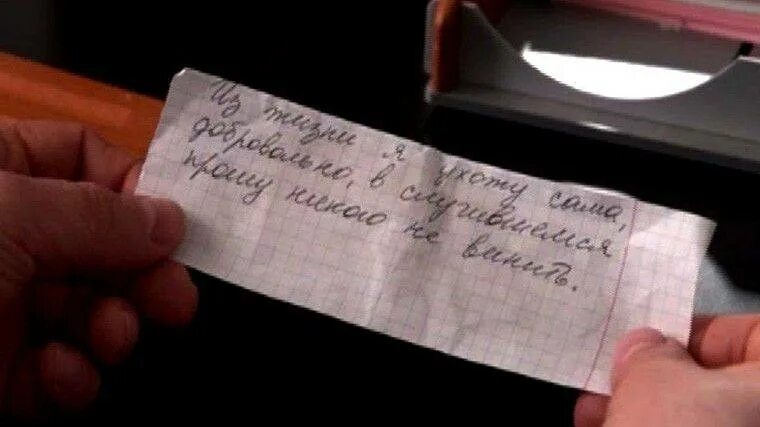 Из жизни я ухожу сама,
добровольно, в случившемся
прошу никого не винить.